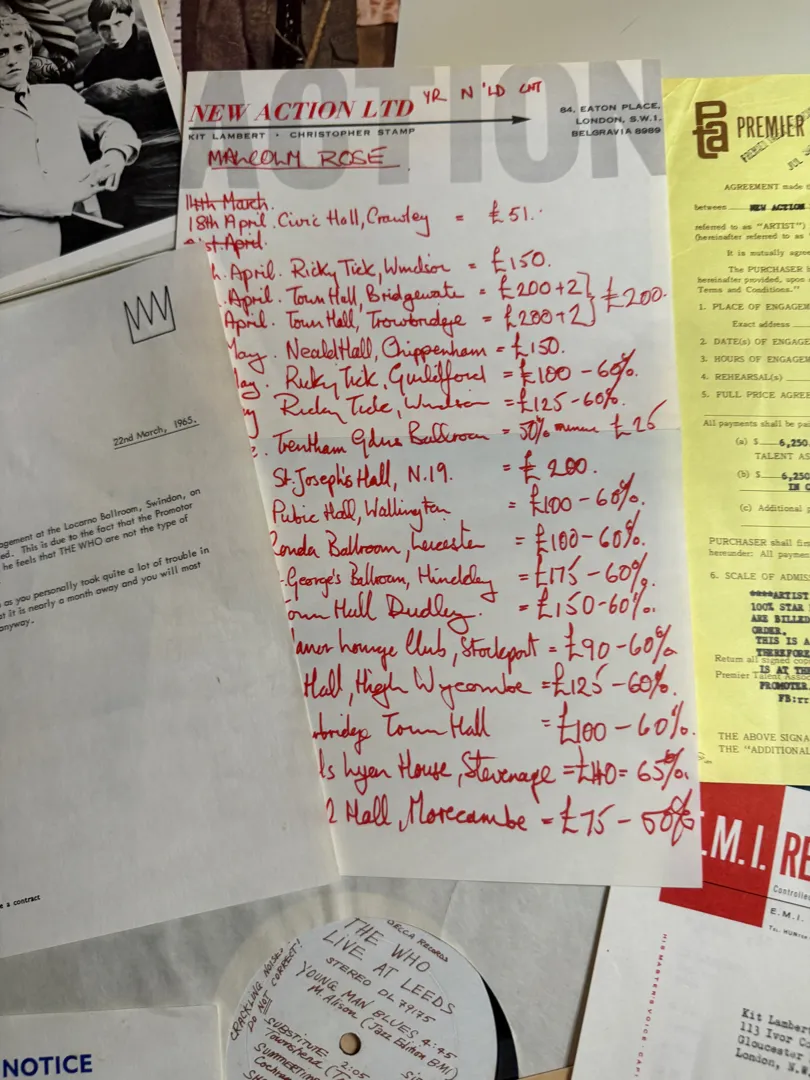 ACTION
NEW ACTION LTD
KIT LAMBERT • CHRISTOPHER STAMP
84, EATON PLACE,
LONDON, S.W.1.
BELGRAVIA 8989
YR N 'LD CNT
MALCOLM ROSE
14th March.
18th April. Civic Hall, Crawley = £51.
21st April.
April. Ricky Tick, Windsor = £150.
April. Town Hall, Bridgewate = £200+2] £200.
April. Town Hall, Trowbridge = £200+2]
May. Neald Hall, Chippenham = £150.
ay. Ricky Tick, Guildford = £100 - 60%.
y Ricky Tick, Windsor = £125 - 60%.
Trentham Gdns Ballroom = 50% £25
St. Joseph's Hall, N.19. = £200.
Pubic Hall, Wallington = £100 - 60%.
Ballroom, Leicester = £100 - 60%.
George's Ballroom, Hinckley = £175 - 60%.
own Hall Dudley. = £150-60%.
anor Lounge Club, Stockport = £90 - 60%
Hall, High Wycombe = £125 - 60%.
wbridge Town Hall = £100 - 60%.
ls Lyen House, Stevenage = £140 = 65%.
Hall, Morecambe = £75 - 50%
22nd March, 1965.
agement at the Locarno Ballroom, Swindon, on
ed. This is due to the fact that the Promotor
he feels that THE WHO are not the type of
as you personally took quite a lot of trouble in
at it is nearly a month away and you will most
anyway.
e a contract
Pta PREMIER
AGREEMENT made
between NEW ACTION
referred to as "ARTIST")
(hereinafter referred to as
It is mutually agree
The PURCHASER
hereinafter provided, upon
Terms and Conditions."
1. PLACE OF ENGAGEM
Exact address
2. DATE(S) OF ENGAGE
3. HOURS OF ENGAGEM
4. REHEARSAL(s)
5. FULL PRICE AGREE
All payments shall be pai
(a) $ 6,250
TALENT AS
(b) $ 6,250
IN C
(c) Additional p
PURCHASER shall firs
hereunder: All paymen
6. SCALE OF ADMISS
****ARTIST
100% STAR
ARE BILLED
ORDER.
THIS IS A
THEREFORE
Return all signed copi
IS AT THE
Premier Talent Assoc
PROMOTER
FB:rr
THE ABOVE SIGNA
THE "ADDITIONAL
.M.I. RE
Controlled
E.M.I.
HIS MASTER'S VOICE • CAPI
Kit Lambert
113 Ivor Co
Gloucester
London, N.W
DECCA RECORDS
THE WHO
LIVE AT LEEDS
STEREO DL 79175
CRACKLING NOISES
DO NOT CORRECT!
YOUNG MAN BLUES 4:45
M. Alison (Jazz Edition BMI)
SUBSTITUTE 2:05
Townshend
SUMMERTIME
Cochran
NOTICE